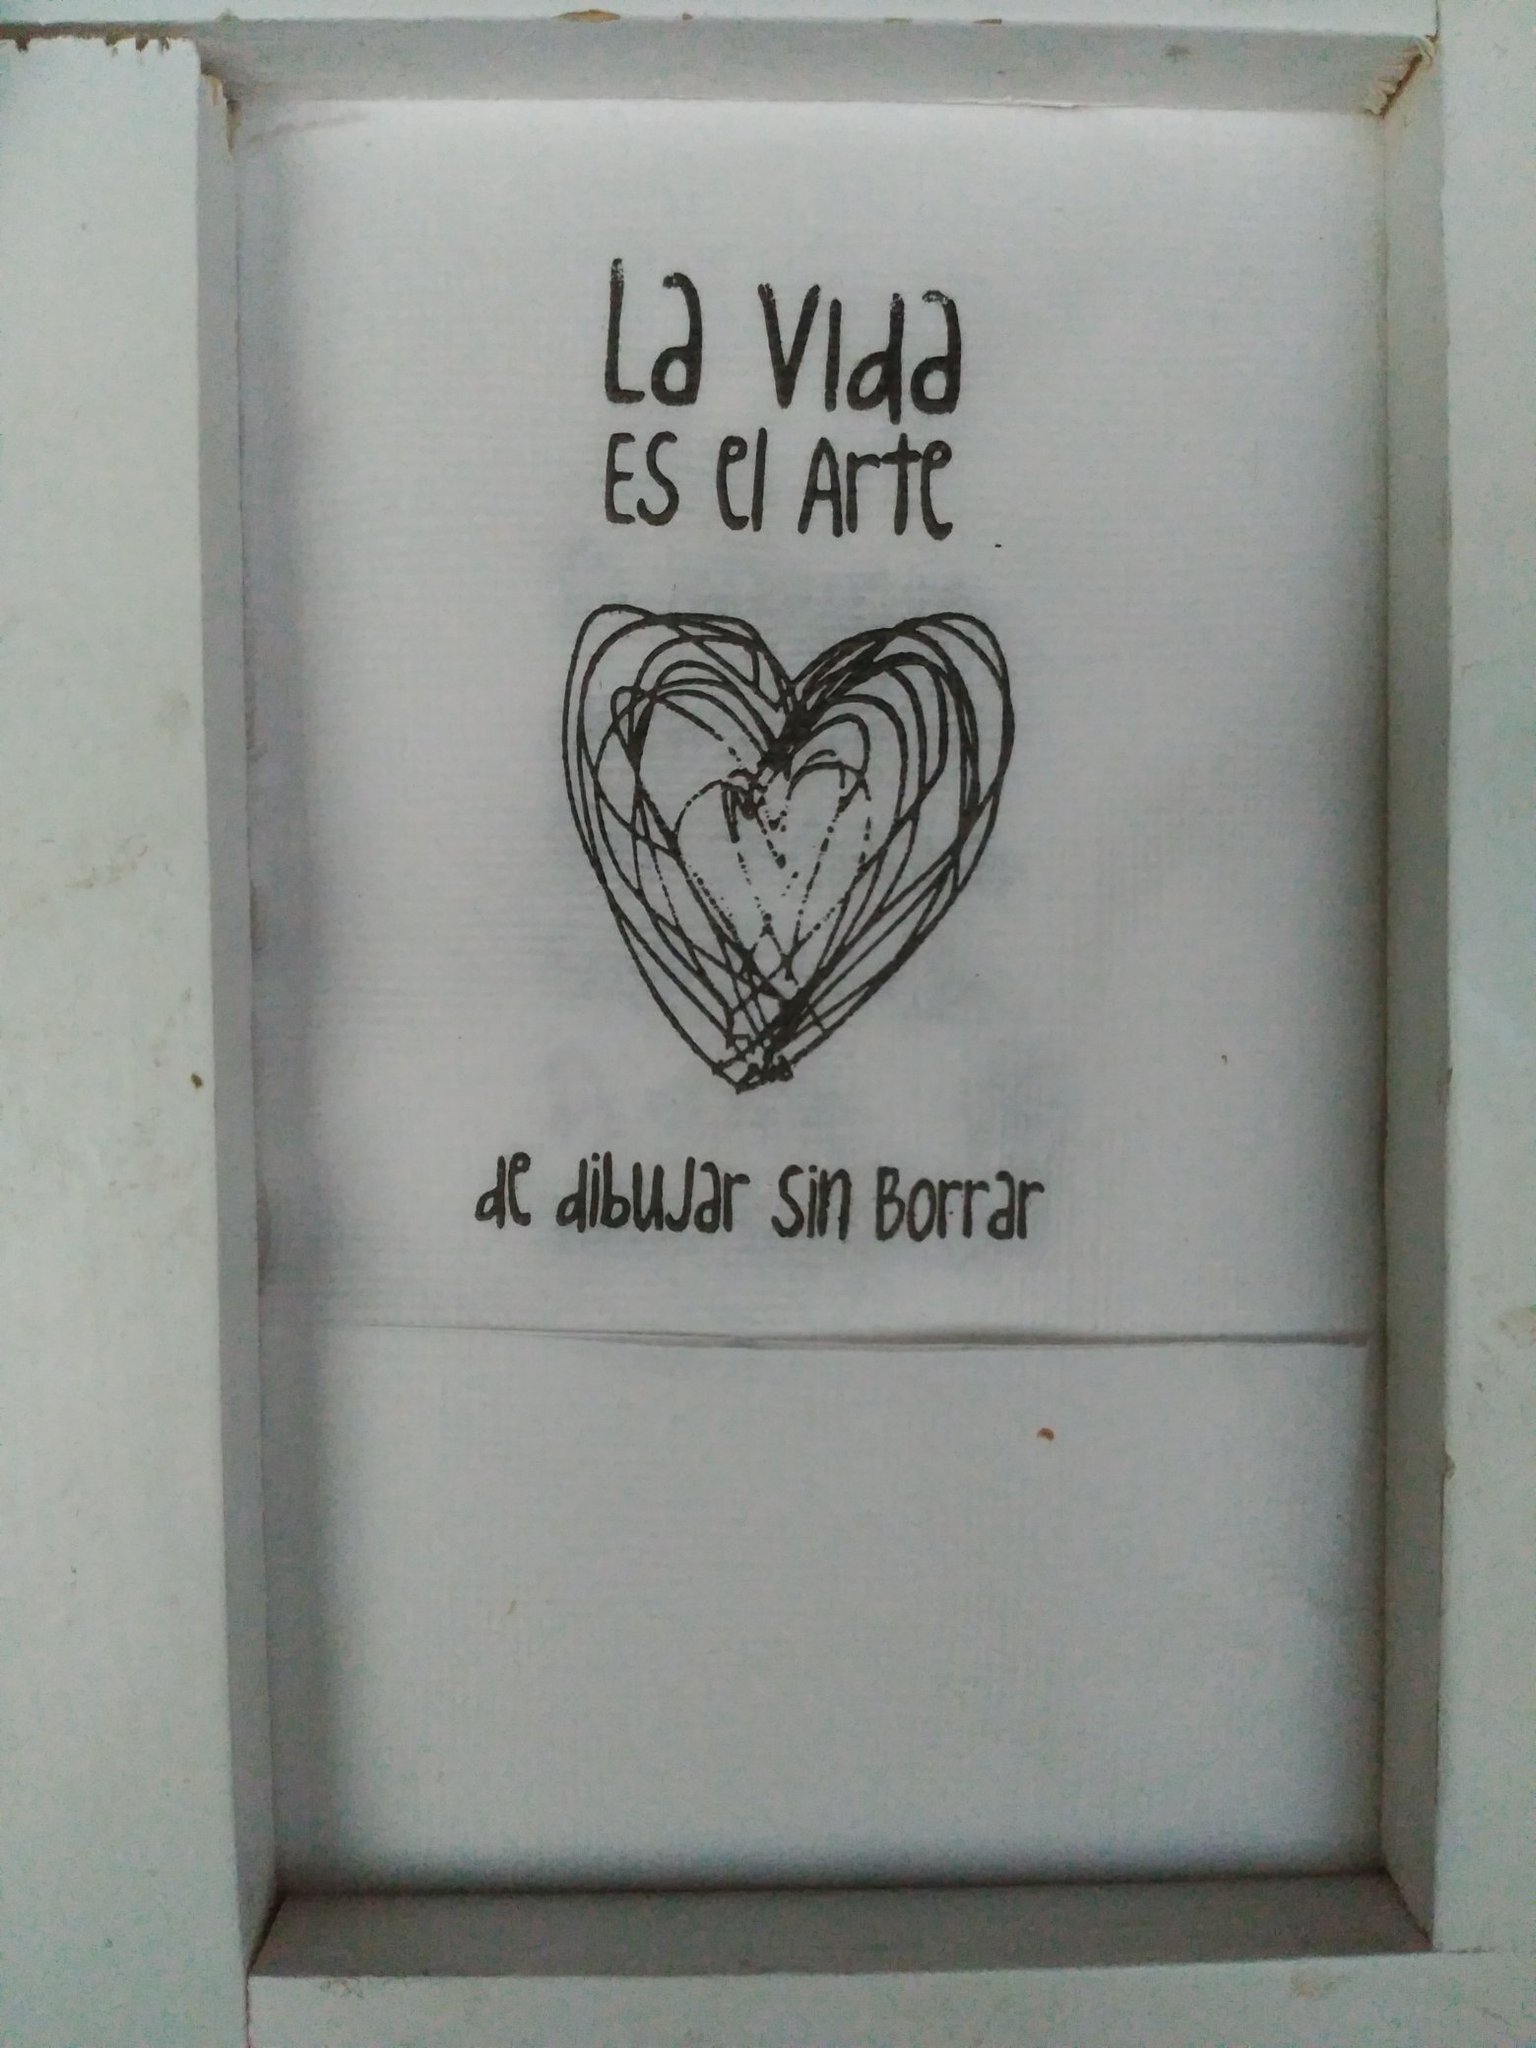 La Vida
ES el Arte
de dibujar sin Borrar